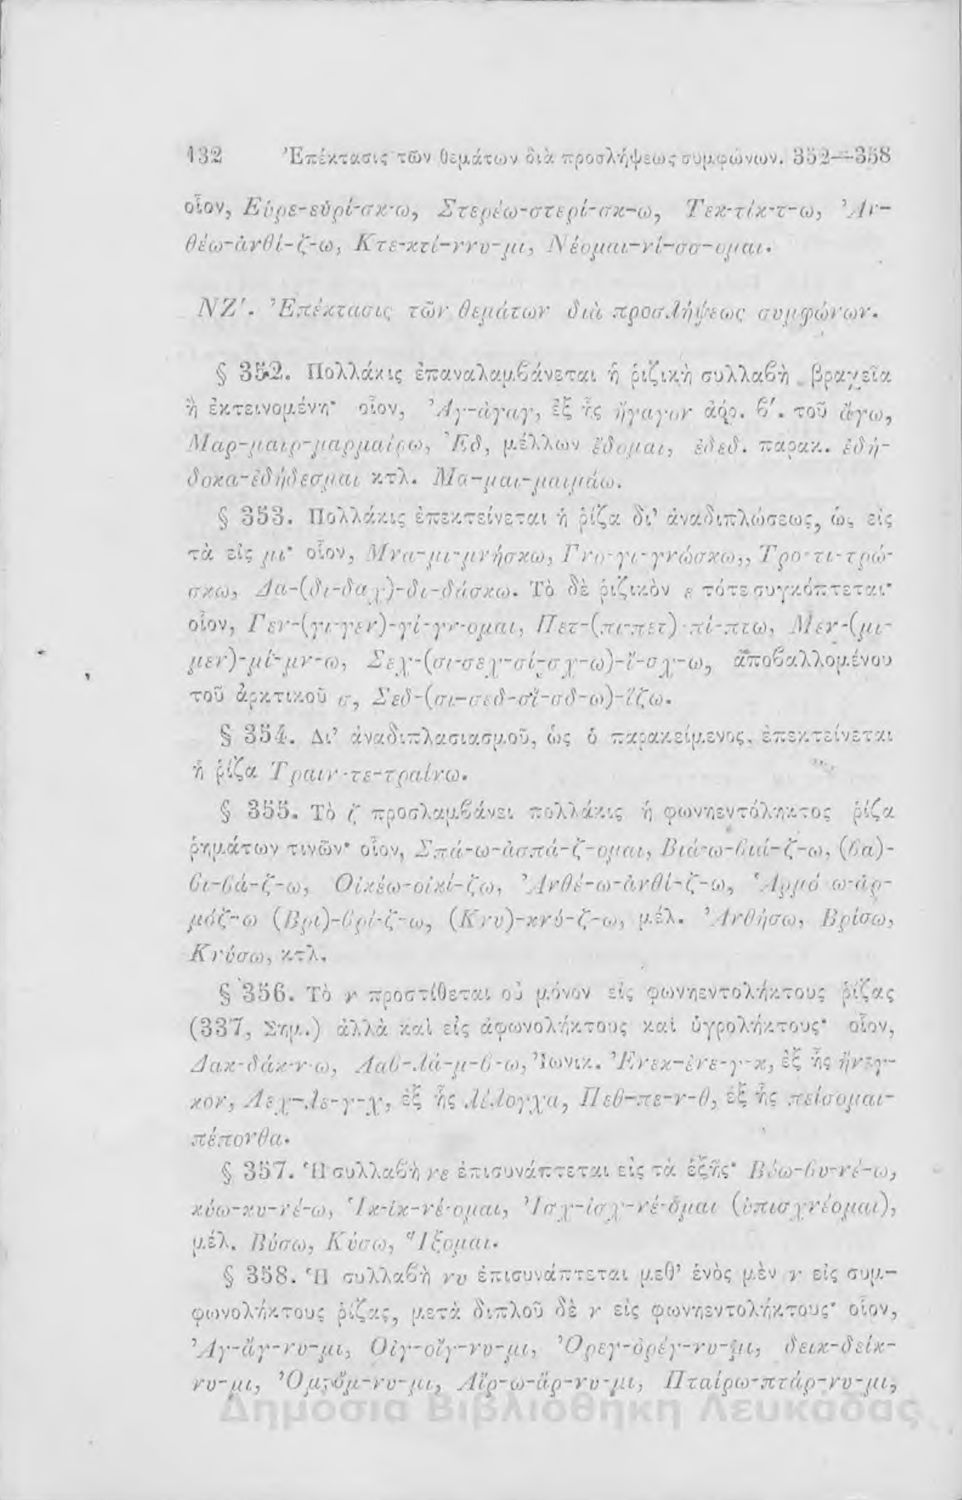 132 Ἐπέκτασις τῶν θεμάτων διὰ προσλήψεως συμφώνων. 352—358
οἷον, Εὑρε-εὑρί-σκ-ω, Στερέω-στερί-σκ-ω, Τεκ-τίκ-τ-ω, Ἀν-
θέω-ἀνθί-ζ-ω, Κτε-κτί-ννυ-μι, Νέομαι-νί-σσ-ομαι.
ΝΖ'. Ἐπέκτασις τῶν θεμάτων διὰ προσλήψεως συμφώνων.
§ 352. Πολλάκις ἐπαναλαμβάνεται ἡ ῥιζικὴ συλλαβὴ βραχεῖα
ἢ ἐκτεινομένη· οἷον, Ἀγ-ἀγαγ, ἐξ ἧς ἤγαγον ἀόρ. β'. τοῦ ἄγω,
Μαρ-μαιρ-μαρμαίρω, Ἐδ, μέλλων ἔδομαι, ἐδεδ. παρακ. ἐδή-
δοκα-ἐδήδεσμαι κτλ. Μα-μαι-μαιμάω.
§ 353. Πολλάκις ἐπεκτείνεται ἡ ῥίζα δι' ἀναδιπλώσεως, ὡς εἰς
τὰ εἰς μι· οἷον, Μνα-μι-μνήσκω, Γνο-γι-γνώσκω,, Τρο-τι-τρώ-
σκω, Δα-(δι-δαχ)-δι-δάσκω. Τὸ δὲ ῥιζικὸν ε τότε συγκόπτεται·
οἷον, Γεν-(γι-γεν)-γί-γν-ομαι, Πετ-(πι-πετ)-πί-πτω, Μεν-(μι-
μεν)-μί-μν-ω, Σεχ-(σι-σεχ-σί-σχ-ω)-ἴ-σχ-ω, ἀποβαλλομένου
τοῦ ἀρκτικοῦ σ, Σεδ-(σι-σεδ-σί-σδ-ω)-ἵζω.
§ 354. Δι' ἀναδιπλασιασμοῦ, ὡς ὁ παρακείμενος, ἐπεκτείνεται
ἡ ῥίζα Τραιν-τε-τραίνω.
§ 355. Τὸ ζ προσλαμβάνει πολλάκις ἡ φωνηεντόληκτος ῥίζα
ῥημάτων τινῶν· οἷον, Σπά-ω-ἀσπά-ζ-ομαι, Βιά-ω-βιά-ζ-ω, (βα)-
βι-βά-ζ-ω, Οἰκέω-οἰκί-ζω, Ἀνθέ-ω-ἀνθί-ζ-ω, Ἁρμό-ω-ἁρ-
μόζ-ω (Βρι)-βρί-ζ-ω, (Κνυ)-κνύ-ζ-ω, μέλ. Ἀνθήσω, Βρίσω,
Κνύσω, κτλ.
§ 356. Τὸ ν προστίθεται οὐ μόνον εἰς φωνηεντολήκτους ῥίζας
(337, Σημ.) ἀλλὰ καὶ εἰς ἀφωνολήκτους καὶ ὑγρολήκτους· οἷον,
Δακ-δάκ-ν-ω, Λαβ-λά-μ-β-ω, Ἰωνικ. Ἐνεκ-ἐνε-γ-κ, ἐξ ἧς ἤνεγ-
κον, Λεχ-λε-γ-χ, ἐξ ἧς λέλογχα, Πεθ-πε-ν-θ, ἐξ ἧς πείσομαι-
πέπονθα.
§ 357. Ἡ συλλαβὴ νε ἐπισυνάπτεται εἰς τὰ ἑξῆς· Βύω-βυ-νέ-ω,
κύω-κυ-νέ-ω, Ἱκ-ἱκ-νέ-ομαι, Ἰσχ-ἰσχ-νέ-ομαι (ὑπισχνέομαι),
μέλ. Βύσω, Κύσω, Ἵξομαι.
§ 358. Ἡ συλλαβὴ νυ ἐπισυνάπτεται μεθ' ἑνὸς μὲν ν εἰς συμ-
φωνολήκτους ῥίζας, μετὰ διπλοῦ δὲ ν εἰς φωνηεντολήκτους· οἷον,
Ἀγ-ἄγ-νυ-μι, Οἰγ-οἴγ-νυ-μι, Ὀρεγ-ὀρέγ-νυ-μι, δεικ-δείκ-
νυ-μι, Ὀμ-ὄμ-νυ-μι, Αἴρ-ω-ἄρ-νυ-μι, Πταίρω-πτάρ-νυ-μι,
Δημόσια Βιβλιοθήκη Λευκάδας